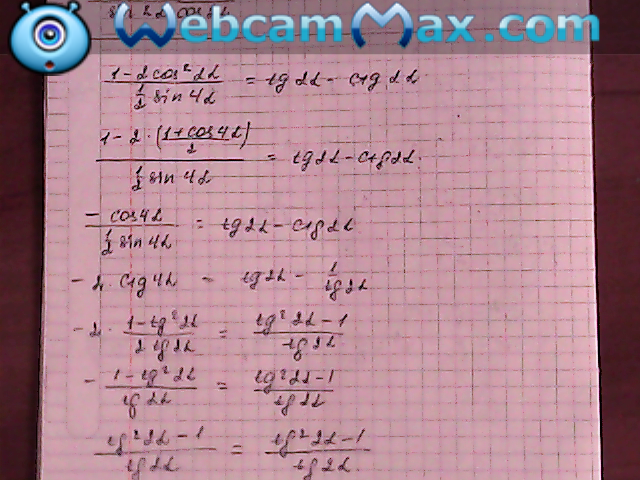 WebcamMax.com
sin 2α cos 2α
(1 - 2 cos² 2α) / (½ sin 4α) = tg 2α - ctg 2α
(1 - 2 · ((1 + cos 4α) / 2)) / (½ sin 4α) = tg 2α - ctg 2α.
- cos 4α / (½ sin 4α) = tg 2α - ctg 2α
- 2 · ctg 4α = tg 2α - 1 / tg 2α
- 2 · (1 - tg² 2α) / (2 tg 2α) = (tg² 2α - 1) / tg 2α
- (1 - tg² 2α) / tg 2α = (tg² 2α - 1) / tg 2α
(tg² 2α - 1) / tg 2α = (tg² 2α - 1) / tg 2α.